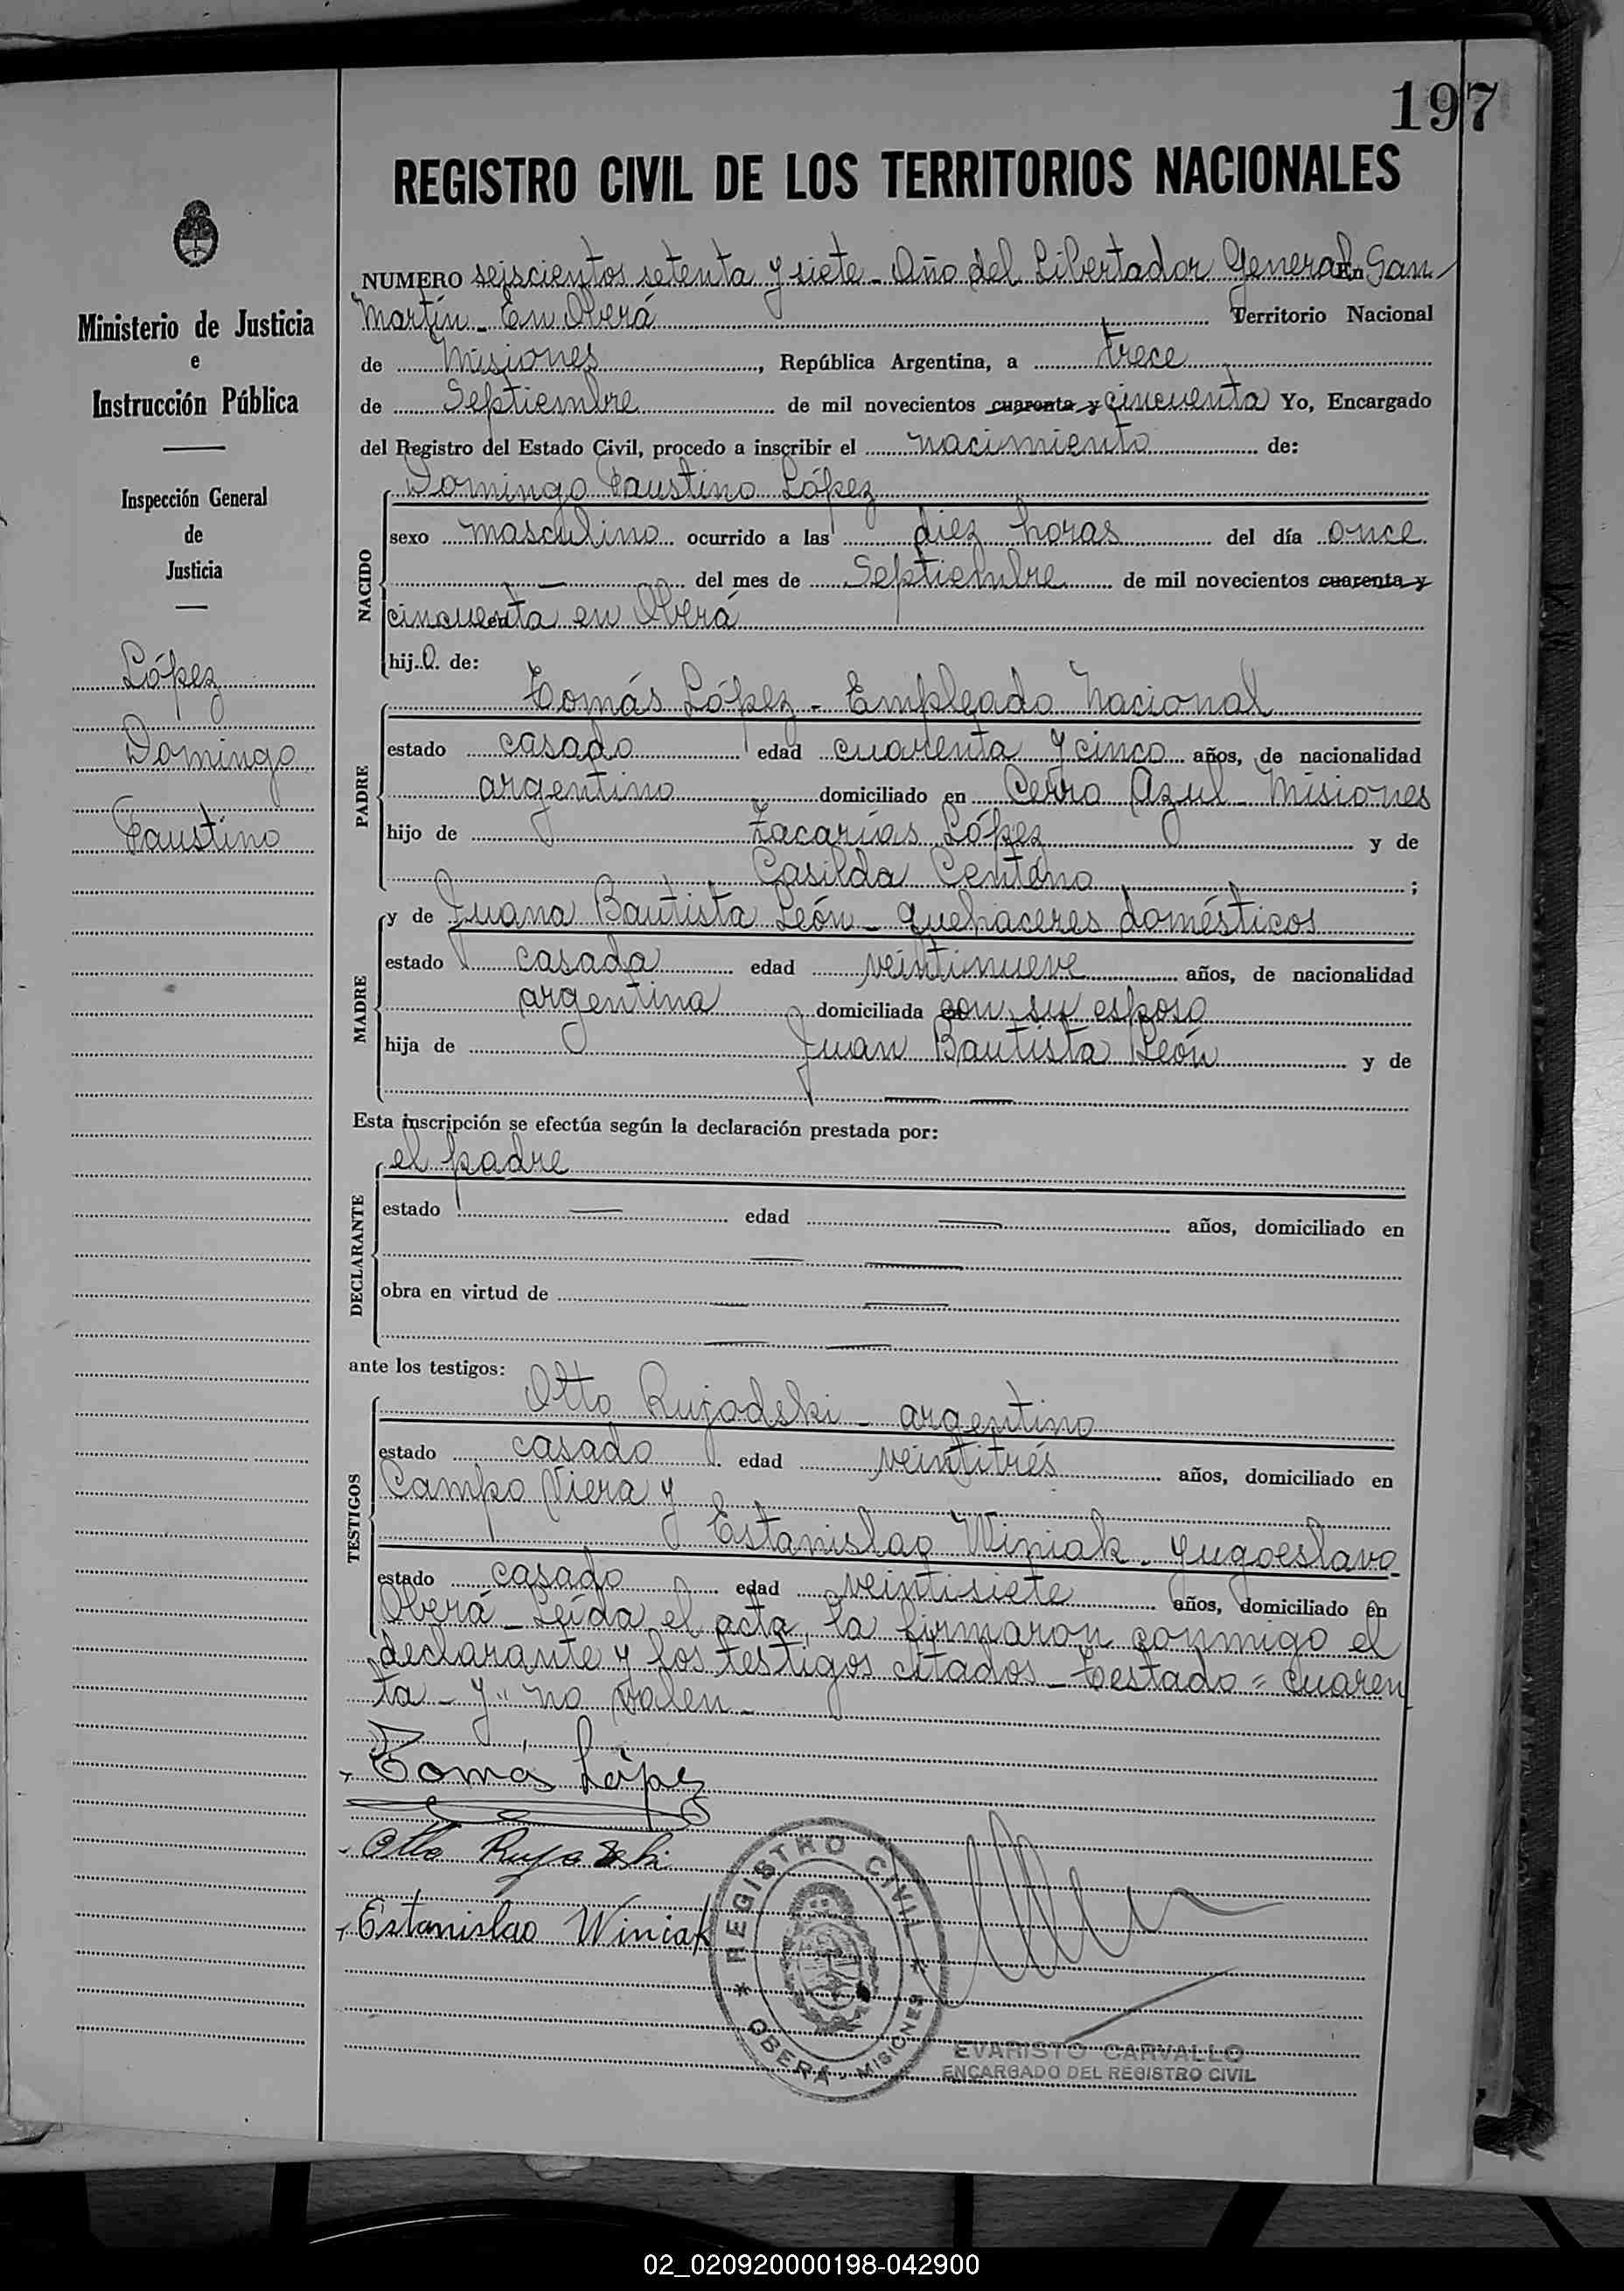 197
REGISTRO CIVIL DE LOS TERRITORIOS NACIONALES
Ministerio de Justicia
e
Instrucción Pública
Inspección General
de
Justicia
López
Domingo
Faustino
NUMERO seiscientos setenta y siete - Año del Libertador General En San
Martín - En Oberá Territorio Nacional
de Misiones, República Argentina, a trece
de Septiembre de mil novecientos cuarenta y cincuenta Yo, Encargado
del Registro del Estado Civil, procedo a inscribir el nacimiento de:
NACIDO
Domingo Faustino López
sexo masculino ocurrido a las diez horas del día once
— del mes de Septiembre de mil novecientos cuarenta y
cincuenta en Oberá
hijo de:
PADRE
Tomás López - Empleado Nacional
estado casado edad cuarenta y cinco años, de nacionalidad
argentino domiciliado en Cerro Azul - Misiones
hijo de Zacarías López y de
Casilda Centeno;
MADRE
y de Juana Bautista León - quehaceres domésticos
estado casada edad veintinueve años, de nacionalidad
argentina domiciliada con su esposo
hija de Juan Bautista León y de
— —
Esta inscripción se efectúa según la declaración prestada por:
DECLARANTE
el padre
estado — edad — años, domiciliado en
— —
obra en virtud de — —
— —
ante los testigos:
TESTIGOS
Otto Rujodski - argentino
estado casado edad veintitrés años, domiciliado en
Campo Viera y
Estanislao Winiak - yugoeslavo -
estado casado edad veintisiete años, domiciliado en
Oberá - Leída el acta, la firmaron conmigo el
declarante y los testigos citados - Testado = cuaren
ta - y" no valen -
Tomás López
Otto Rujodski
Estanislao Winiak
REGISTRO CIVIL
* OBERÁ - MISIONES *
EVARISTO CARVALLO
ENCARGADO DEL REGISTRO CIVIL
02_020920000198-042900